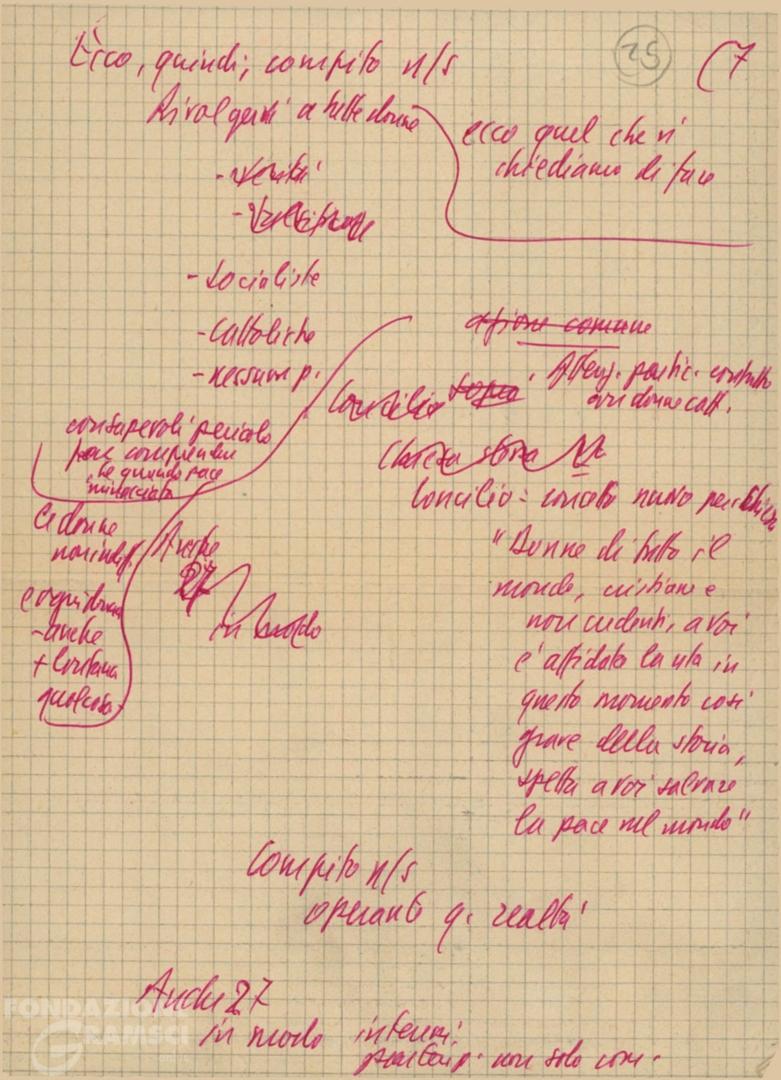 25
(7
Ecco, quindi, compito n/s
Rivolgersi a tutte donne
ecco quel che vi
chiediamo di fare
- socialiste
- Cattoliche
- nessun p.
azione comune
Concilio sopra. Attenz. partic. contatto
con donne catt.
consapevoli pericolo
per comprendere
che quando pace
minacciata
Le donne
non indiff.
- anche
+ lontana
qualcosa
Anche
27
in modo
Concilio = concetto nuovo per Chiesa
"Donne di tutto il
mondo, cristiane e
non credenti, a voi
è affidata la vita in
questo momento così
grave della storia,
spetta a voi salvare
la pace nel mondo"
Compito n/s
operante q. realtà
Anche 27
in modo
partecip. non solo com.
FONDAZIONE
GRAMSCI